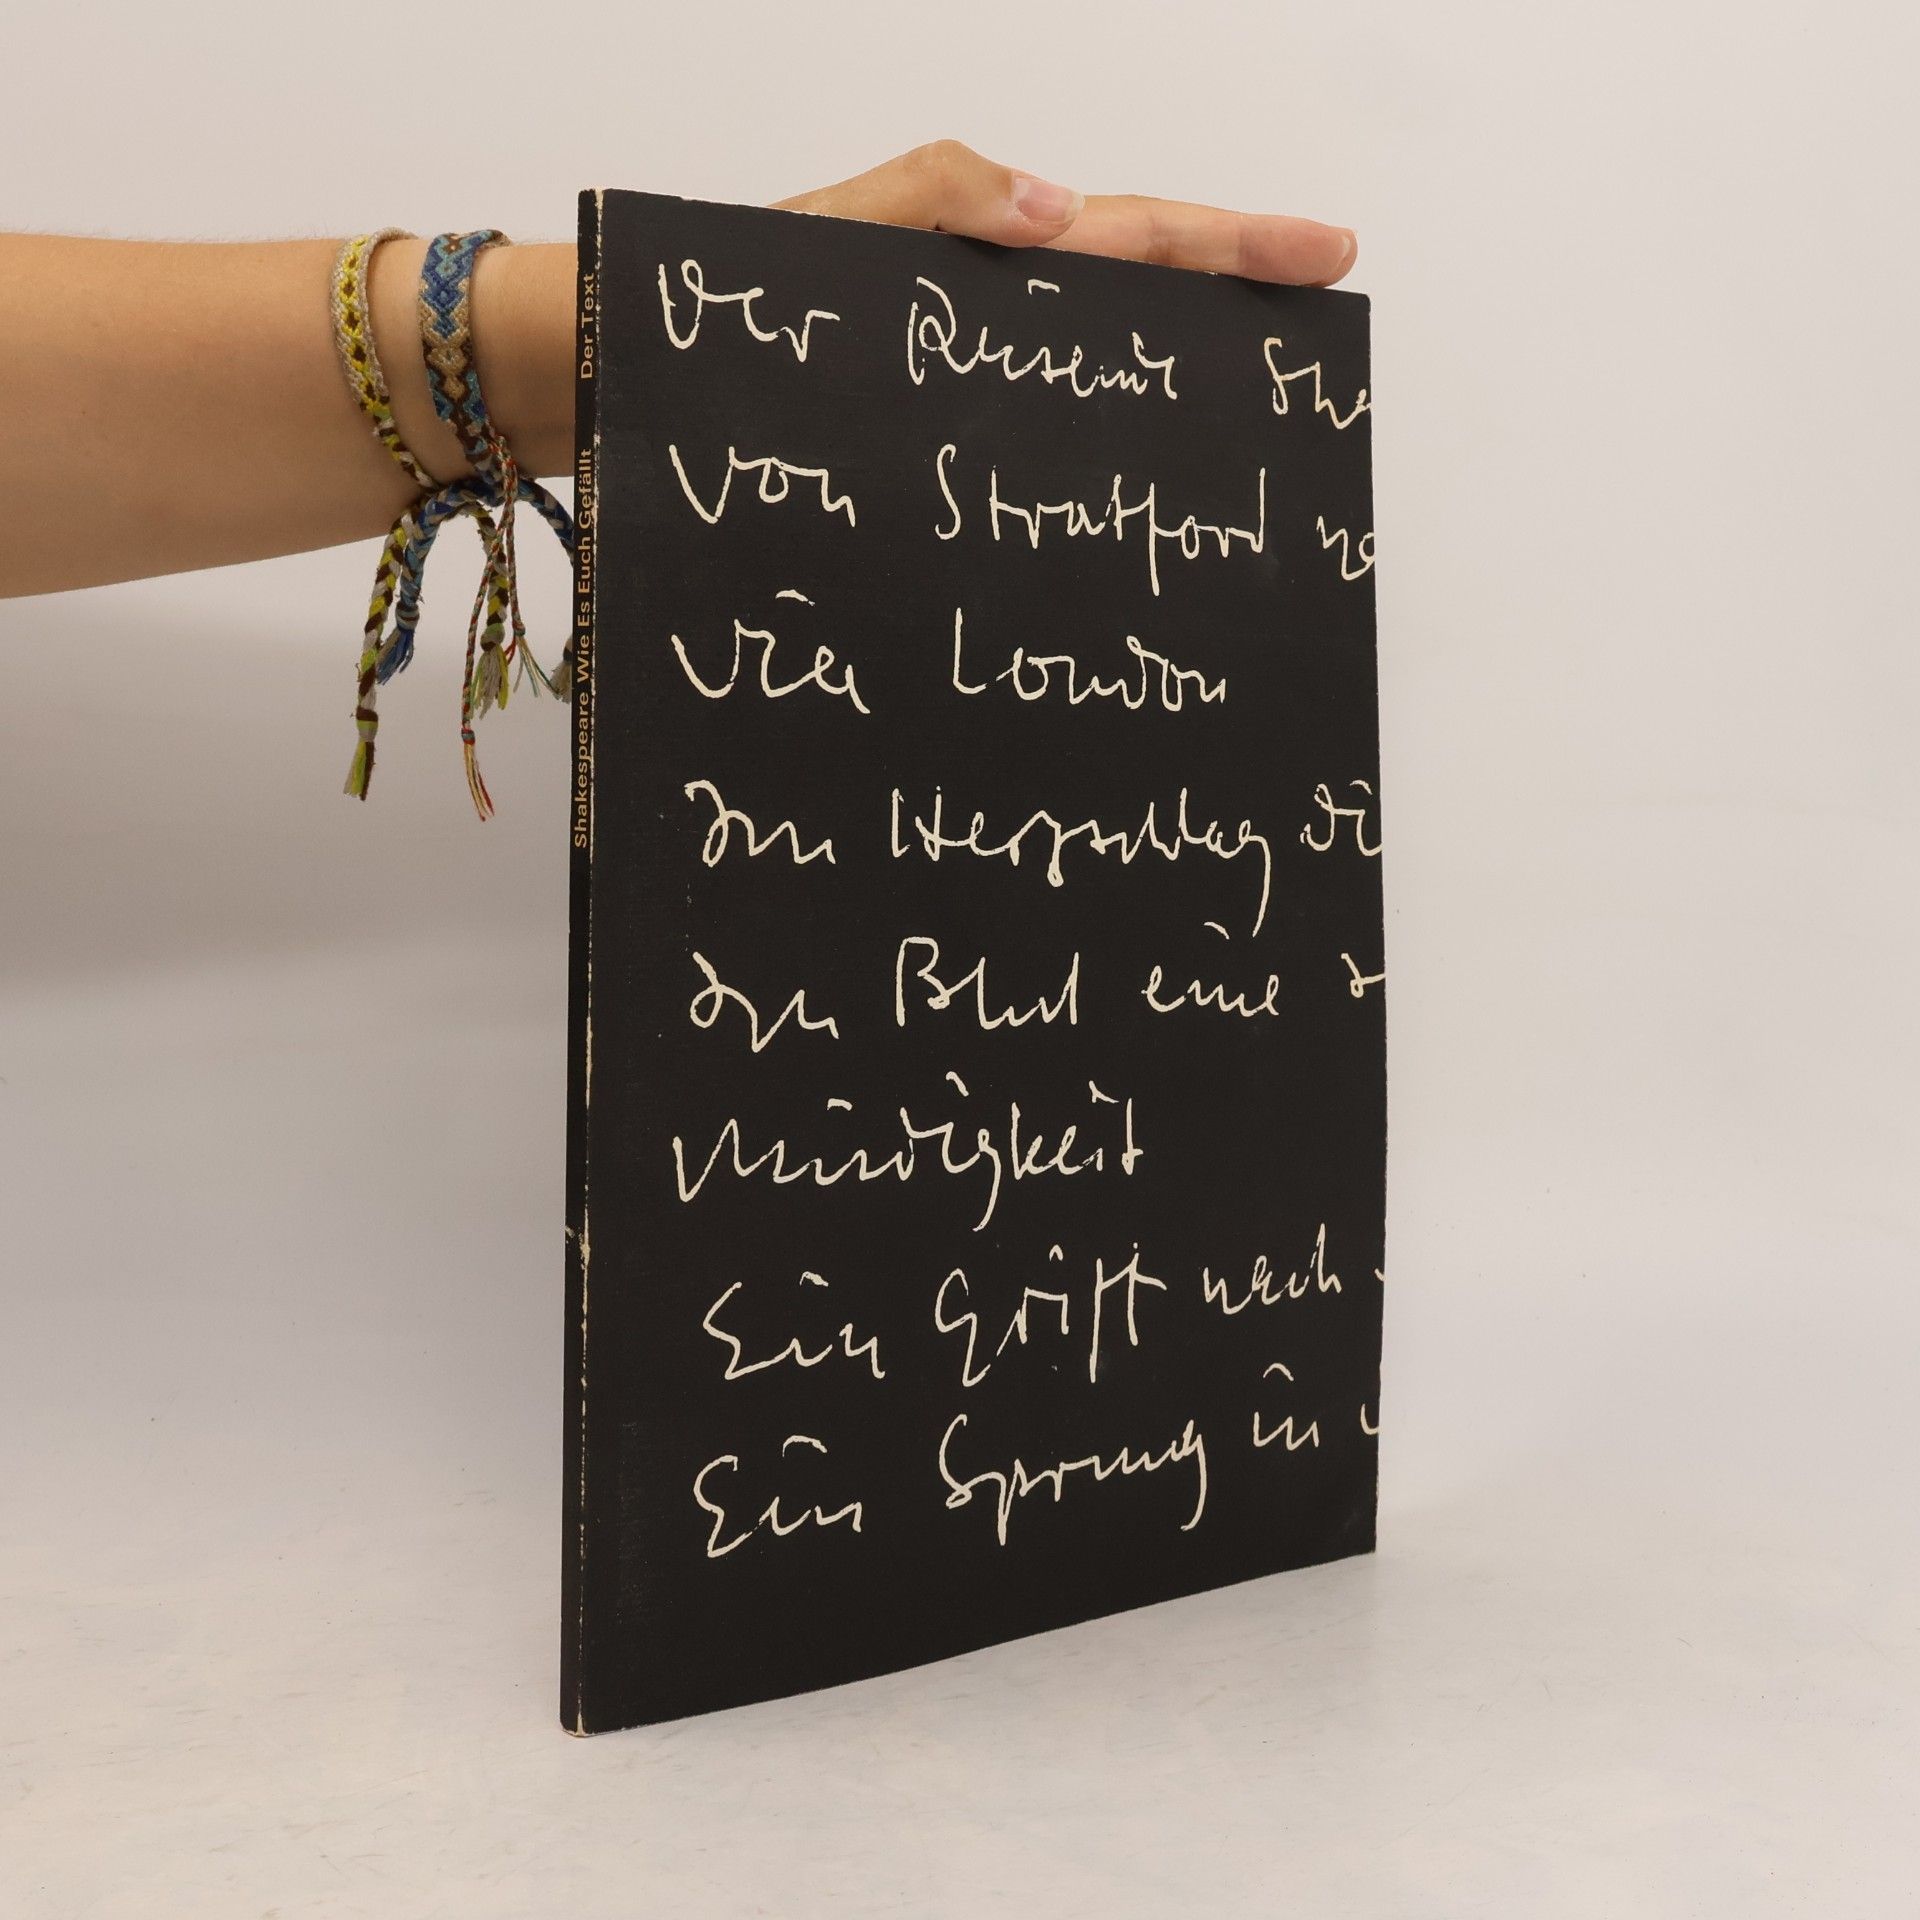 Shakespeare Wie Es Euch Gefällt Der Text
Der Reisende Sha
von Stratford na
via London
Im Herzschlag di
Im Blut eine
Müdigkeit
Ein Griff nach
Ein Sprung in